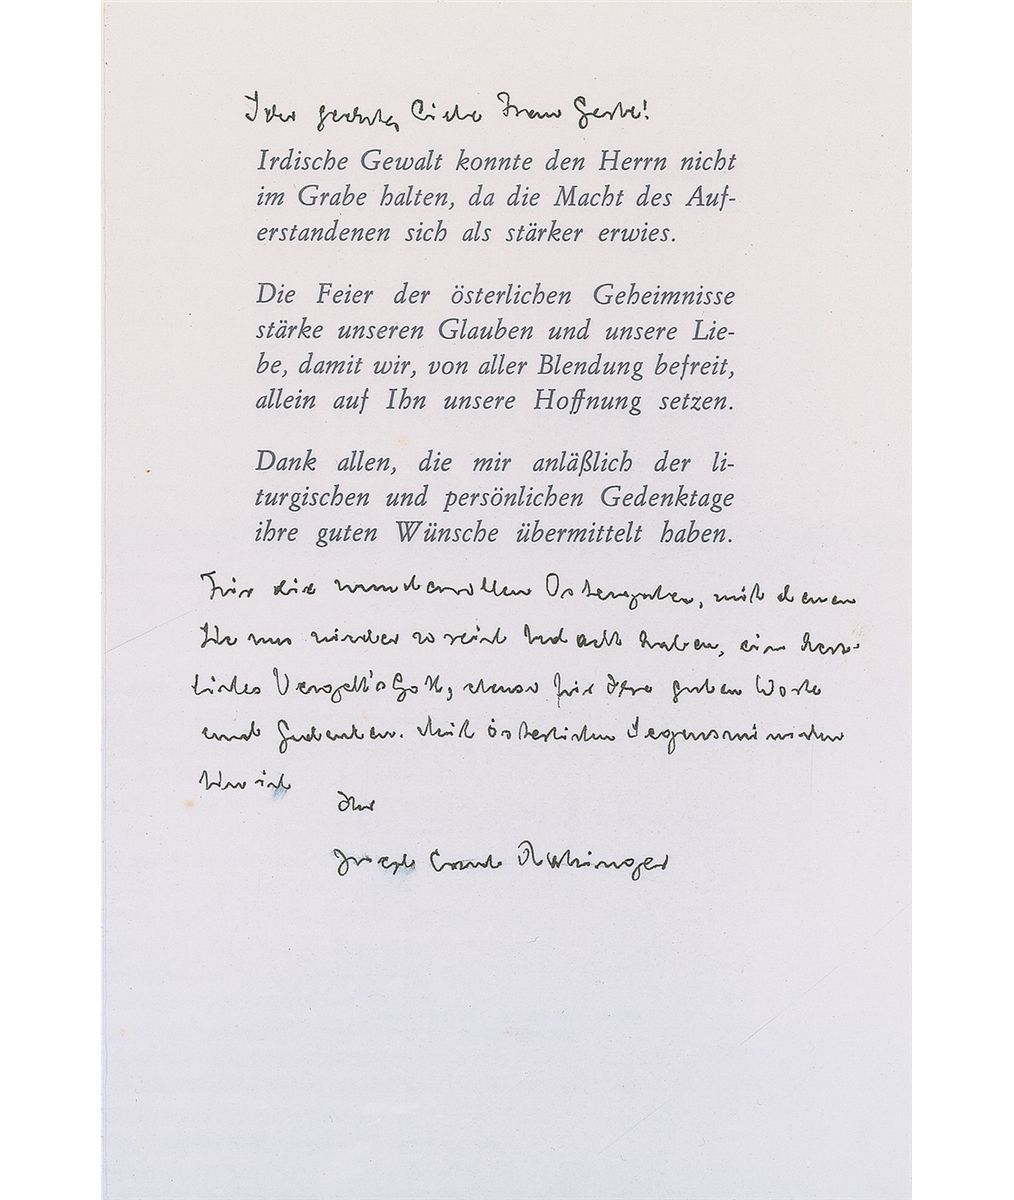 Sehr geehrte, liebe Frau
Irdische Gewalt konnte den Herrn nicht
im Grabe halten, da die Macht des Auf-
erstandenen sich als stärker erwies.
Die Feier der österlichen Geheimnisse
stärke unseren Glauben und unsere Lie-
be, damit wir, von aller Blendung befreit,
allein auf Ihn unsere Hoffnung setzen.
Dank allen, die mir anläßlich der li-
turgischen und persönlichen Gedenktage
ihre guten Wünsche übermittelt haben.
Für die wundervollen Ostergaben, mit denen
Sie uns wieder so reich bedacht haben, ein herz-
liches Vergelt's Gott, ebenso für Ihre guten Worte
und Gedanken. Mit österlichen Segenswünschen
bin ich
Ihr
Joseph Card. Ratzinger